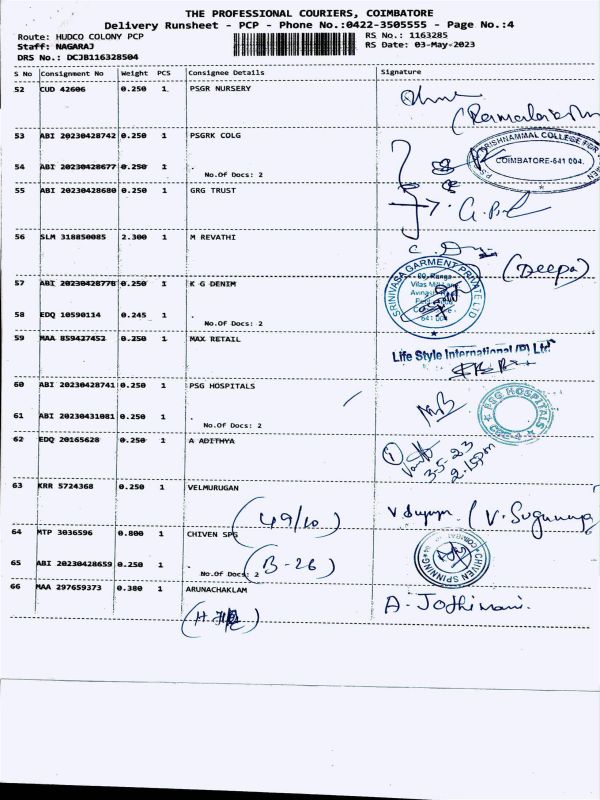 THE PROFESSIONAL COURIERS, COIMBATORE
Delivery Runsheet - PCP - Phone No.:0422-3505555 - Page No.:4
Route: HUDCO COLONY PCP
RS No.: 1163285
Staff: NAGARAJ
RS Date: 03-May-2023
DRS No.: DCJB116328504
S No Consignment No Weight PCS Consignee Details Signature
52 CUD 42606 0.250 1 PSGR NURSERY
53 ABI 20230428742 0.250 1 PSGRK COLG
COIMBATORE-641 004.
54 ABI 20230428677 0.250 1 .
No.Of Docs: 2
55 ABI 20230428680 0.250 1 GRG TRUST
56 SLM 318850085 2.300 1 M REVATHI
(Deepa)
SRINIVASA GARMENT PRIVATE LTD
57 ABI 20230428778 0.250 1 K G DENIM
58 EDQ 10590114 0.245 1 .
No.Of Docs: 2
59 MAA 859427452 0.250 1 MAX RETAIL
Life Style International (P) Ltd
60 ABI 20230428741 0.250 1 PSG HOSPITALS
PSG HOSPITALS
61 ABI 20230431081 0.250 1 .
No.Of Docs: 2
62 EDQ 20165628 0.250 1 A ADITHYA
1
3-5-23
2.15pm
63 KRR 5724368 0.250 1 VELMURUGAN
(49/10)
64 MTP 3036596 0.800 1 CHIVEN SPG
CHIVEN SPINNING
65 ABI 20230428659 0.250 1 .
No.Of Docs: 2
(B-26)
66 MAA 297659373 0.380 1 ARUNACHAKLAM
A. Jothimani.